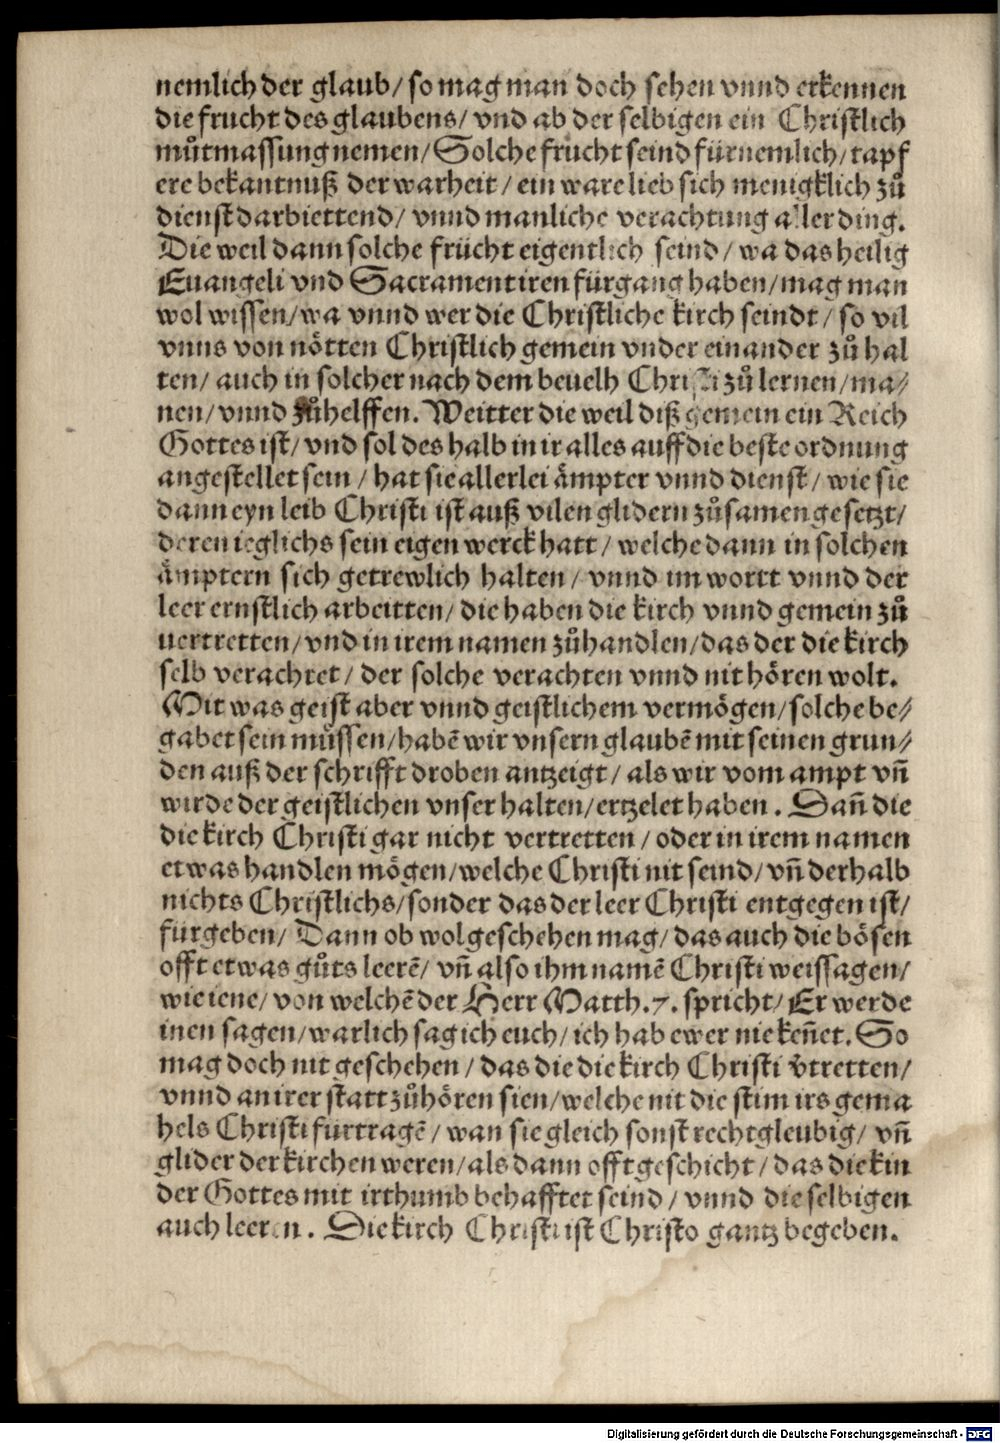 nemlich der glaub/ so mag man doch sehen vnnd erkennen
die frucht des glaubens/ vnd ab der selbigen ein Christlich
můtmassung nemen/ Solche frücht seind fürnemlich/ tapf
ere bekantnuß der warheit/ ein ware lieb sich menigklich zů
dienst darbiettend/ vnnd manliche verachtung aller ding.
Die weil dann solche frücht eigentlich seind/ wa das heilig
Euangeli vnd Sacrament iren fürgang haben/ mag man
wol wissen/ wa vnnd wer die Christliche kirch seindt/ so vil
vnns von nötten Christlich gemein vnder einander zů hal
ten/ auch in solcher nach dem beuelh Christi zů lernen/ ma⸗
nen/ vnnd zůhelffen. Weitter die weil diß gemein ein Reich
Gottes ist/ vnd sol des halb in ir alles auff die beste ordnung
angestellet sein/ hat sie allerlei ämpter vnnd dienst/ wie sie
dann eyn leib Christi ist auß vilen glidern zůsamen gesetzt/
deren ieglichs sein eigen werck hatt/ welche dann in solchen
ämptern sich getrewlich halten/ vnnd im wortt vnnd der
leer ernstlich arbeitten/ die haben die kirch vnnd gemein zů
uertretten/ vnd in irem namen zůhandlen/ das der die kirch
selb verachtet/ der solche verachten vnnd nit hören wolt.
Mit was geist aber vnnd geistlichem vermögen/ solche be⸗
gabet sein müssen/ habē wir vnsern glaubē mit seinen grun⸗
den auß der schrifft droben antzeigt/ als wir vom ampt vn̄
wirde der geistlichen vnser halten/ ertzelet haben. Dan̄ die
die kirch Christi gar nicht vertretten/ oder in irem namen
etwas handlen mögen/ welche Christi nit seind/ vn̄ derhalb
nichts Christlichs/ sonder das der leer Christi entgegen ist/
fürgeben/ Dann ob wol geschehen mag/ das auch die bösen
offt etwas gůts leerē/ vn̄ also ihm namē Christi weissagen/
wie iene/ von welchē der Herr Matth.7. spricht/ Er werde
inen sagen/ warlich sag ich euch/ ich hab ewer nie ken̄et. So
mag doch nit geschehen/ das die die kirch Christi v̄tretten/
vnnd an irer statt zůhören sien/ welche nit die stim irs gema
hels Christi fürtragē/ wan sie gleich sonst rechtgleubig/ vn̄
glider der kirchen weren/ als dann offt geschicht/ das die kin
der Gottes mit irthumb behafftet seind/ vnnd die selbigen
auch leeren. Die kirch Christi ist Christo gantz begeben.
Digitalisierung gefördert durch die Deutsche Forschungsgemeinschaft - DFG